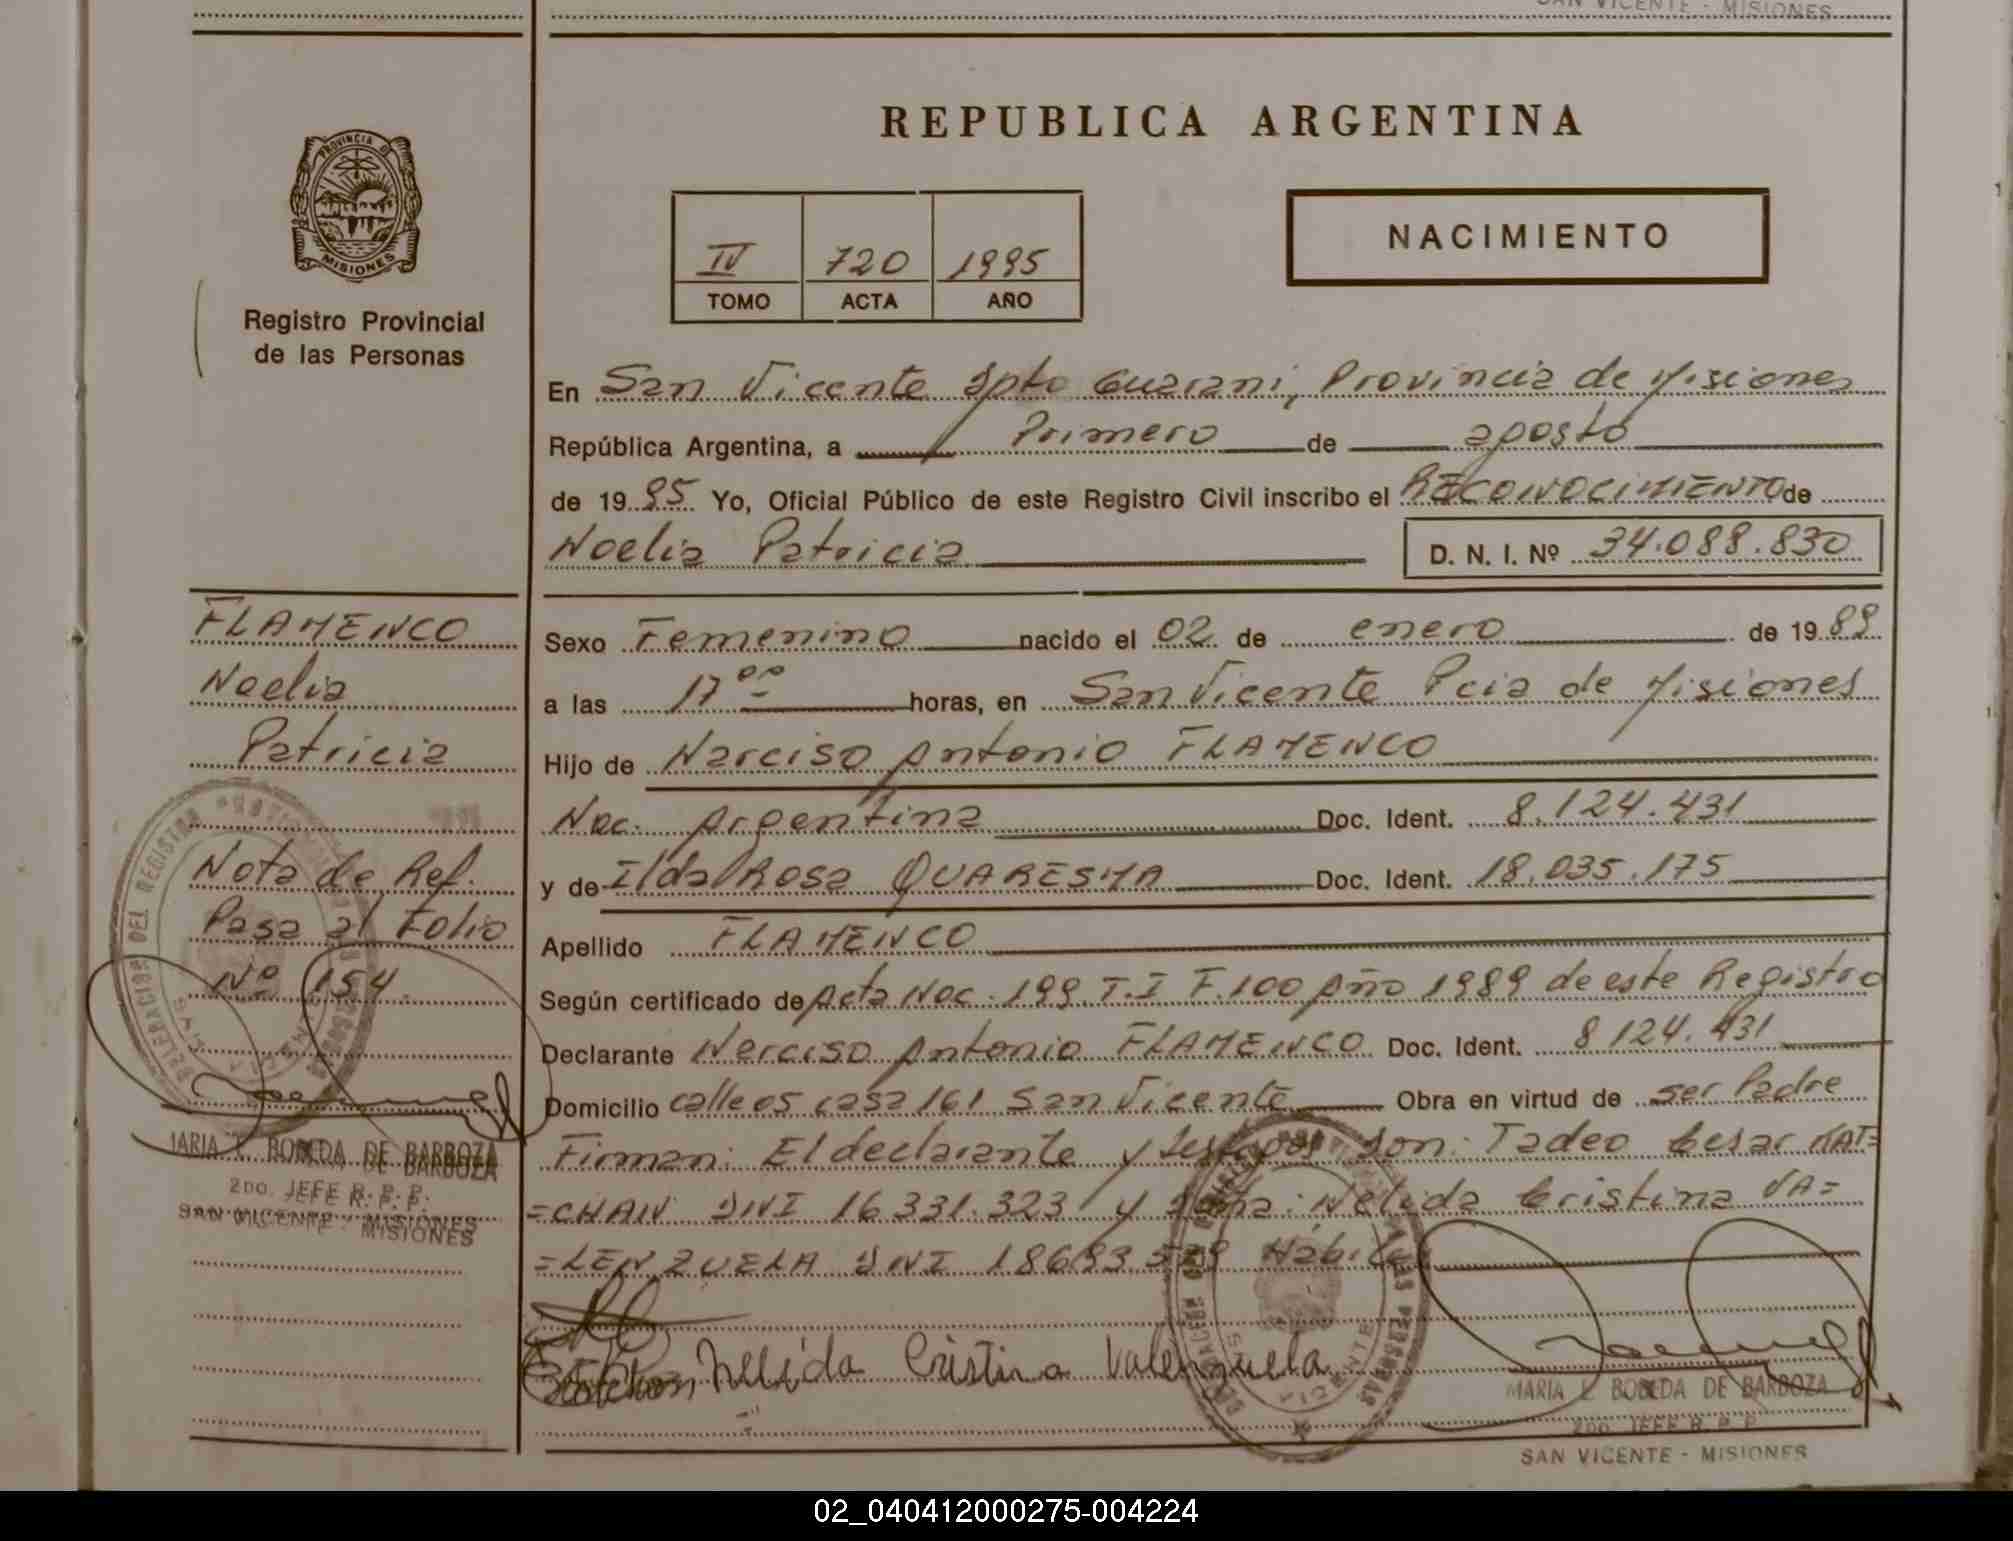 SAN VICENTE - MISIONES
PROVINCIA DE
MISIONES
Registro Provincial
de las Personas
REPUBLICA ARGENTINA
IV 720 1995
TOMO ACTA AÑO
NACIMIENTO
En San Vicente Dpto Guarani, Provincia de Misiones
República Argentina, a Primero de agosto
de 1995 Yo, Oficial Público de este Registro Civil inscribo el RECONOCIMIENTO de
Noelia Patricia D. N. I. Nº 34.088.830
FLAMENCO
Noelia
Patricia
Nota de Ref.
Pasa al Folio
Nº 154.
MARIA L. BOBEDA DE BARBOZA
2DO. JEFE R. P. P.
SAN VICENTE - MISIONES
Sexo Femenino nacido el 02 de enero de 1989
a las 17 00 horas, en San Vicente Pcia de Misiones
Hijo de Narciso Antonio FLAMENCO
Nac. Argentina Doc. Ident. 8.124.431
y de Ilda Rosa QUARESMA Doc. Ident. 18.035.175
Apellido FLAMENCO
Según certificado de Acta Nac. 199 T.I F.100 Año 1989 de este Registro
Declarante Narciso Antonio FLAMENCO Doc. Ident. 8124.431
Domicilio calle 05 casa 161 San Vicente Obra en virtud de ser Padre
Firman: El declarante y testigos son: Tadeo Cesar KAT=
=CHAN DNI 16331.323 y Doña: Nelida Cristina VA=
=LENZUELA DNI
Nelida Cristina Valenzuela
MARIA L. BOBEDA DE BARBOZA
2DO. JEFE R. P. P.
SAN VICENTE - MISIONES
02_040412000275-004224